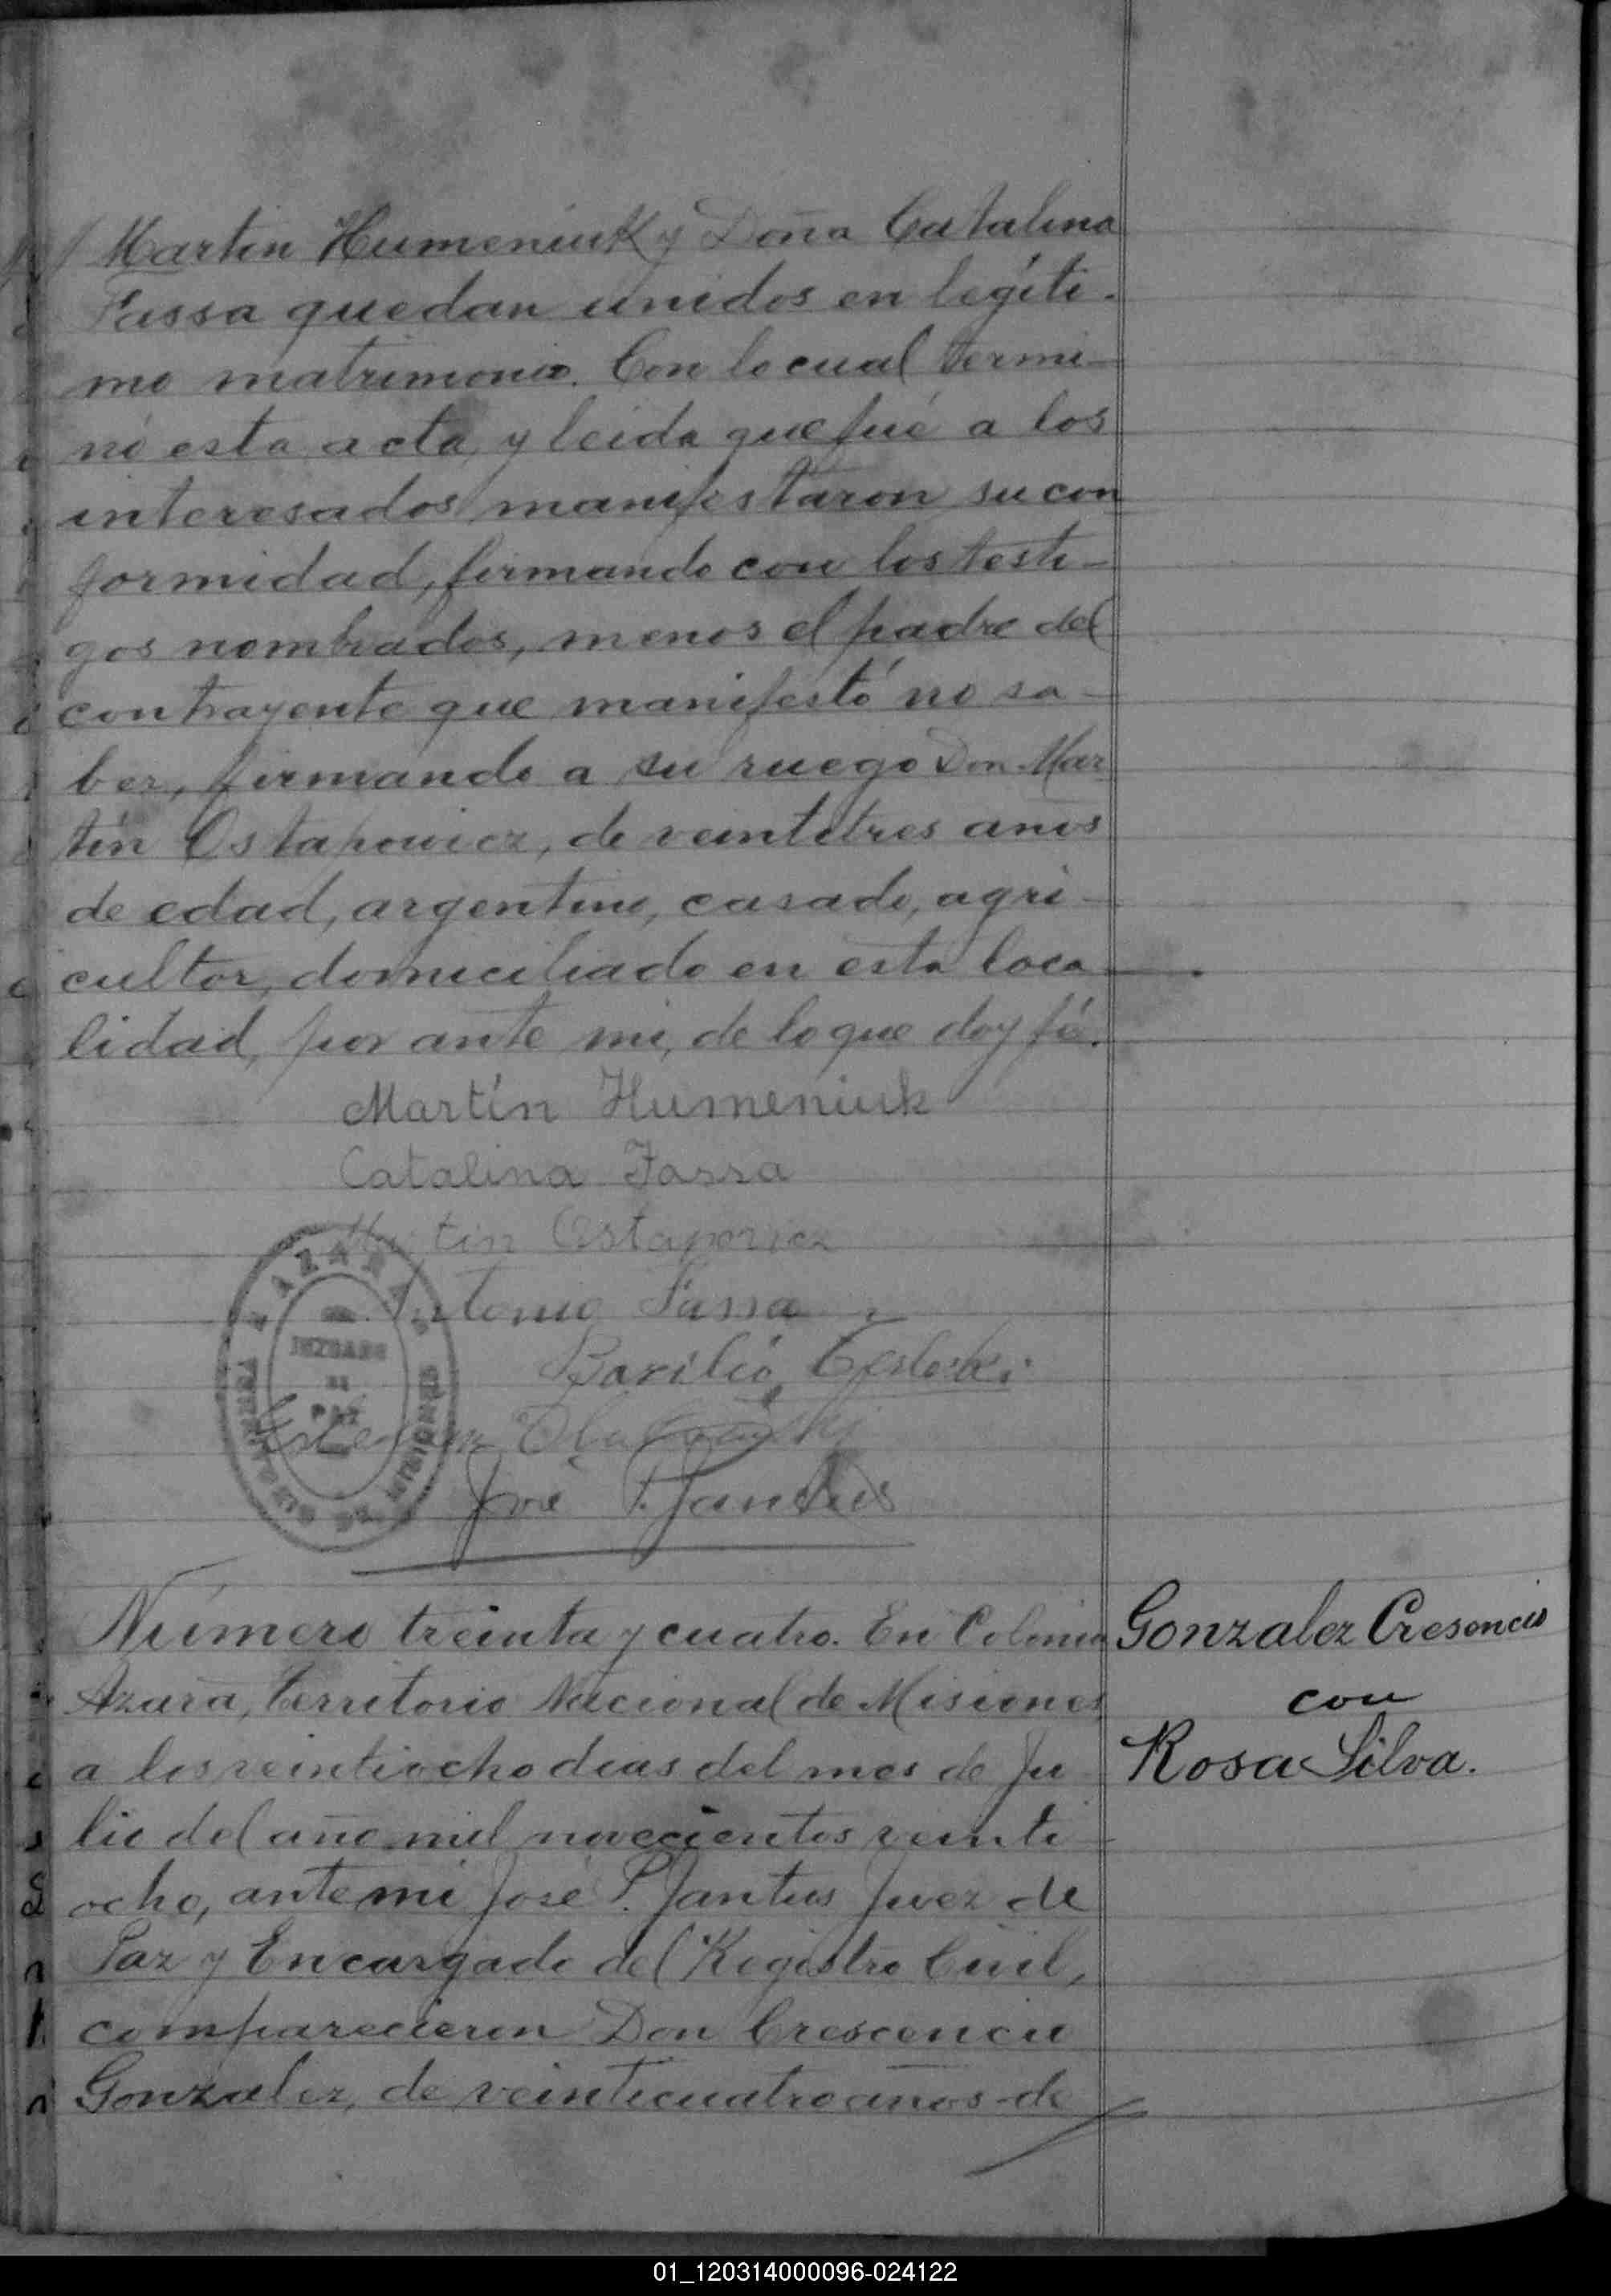 Martin Humeniuk y Doña Catalina
Fassa quedan unidos en legíti-
mo matrimonio. Con lo cual termi-
nó esta acta, y leida que fué a los
interesados manifestaron su con
formidad, firmando con los testi-
gos nombrados, menos el padre del
contrayente que manifestó no sa-
ber, firmando a su ruego Don Mar
tín Ostapowicz, de veintitres años
de edad, argentino, casado, agri-
cultor, domiciliado en esta loca-
lidad, por ante mi, de lo que doy fé.
Martín Humeniuk
Catalina Fassa
Martin Ostapowicz
Antonio Fassa
Basilio
José P. Jantus
AZARA
JUZGADO
DE
PAZ
Número treinta y cuatro. En Colonia
Azara, Territorio Nacional de Misiones
a los veintiocho dias del mes de Ju
lio del año mil novecientos veinti-
ocho, ante mi José P. Jantus Juez de
Paz y Encargado del Registro Civil,
comparecieron Don Crescencio
Gonzalez, de veinticuatro años de
Gonzalez Cresencio
con
Rosa Silva.
01_120314000096-024122